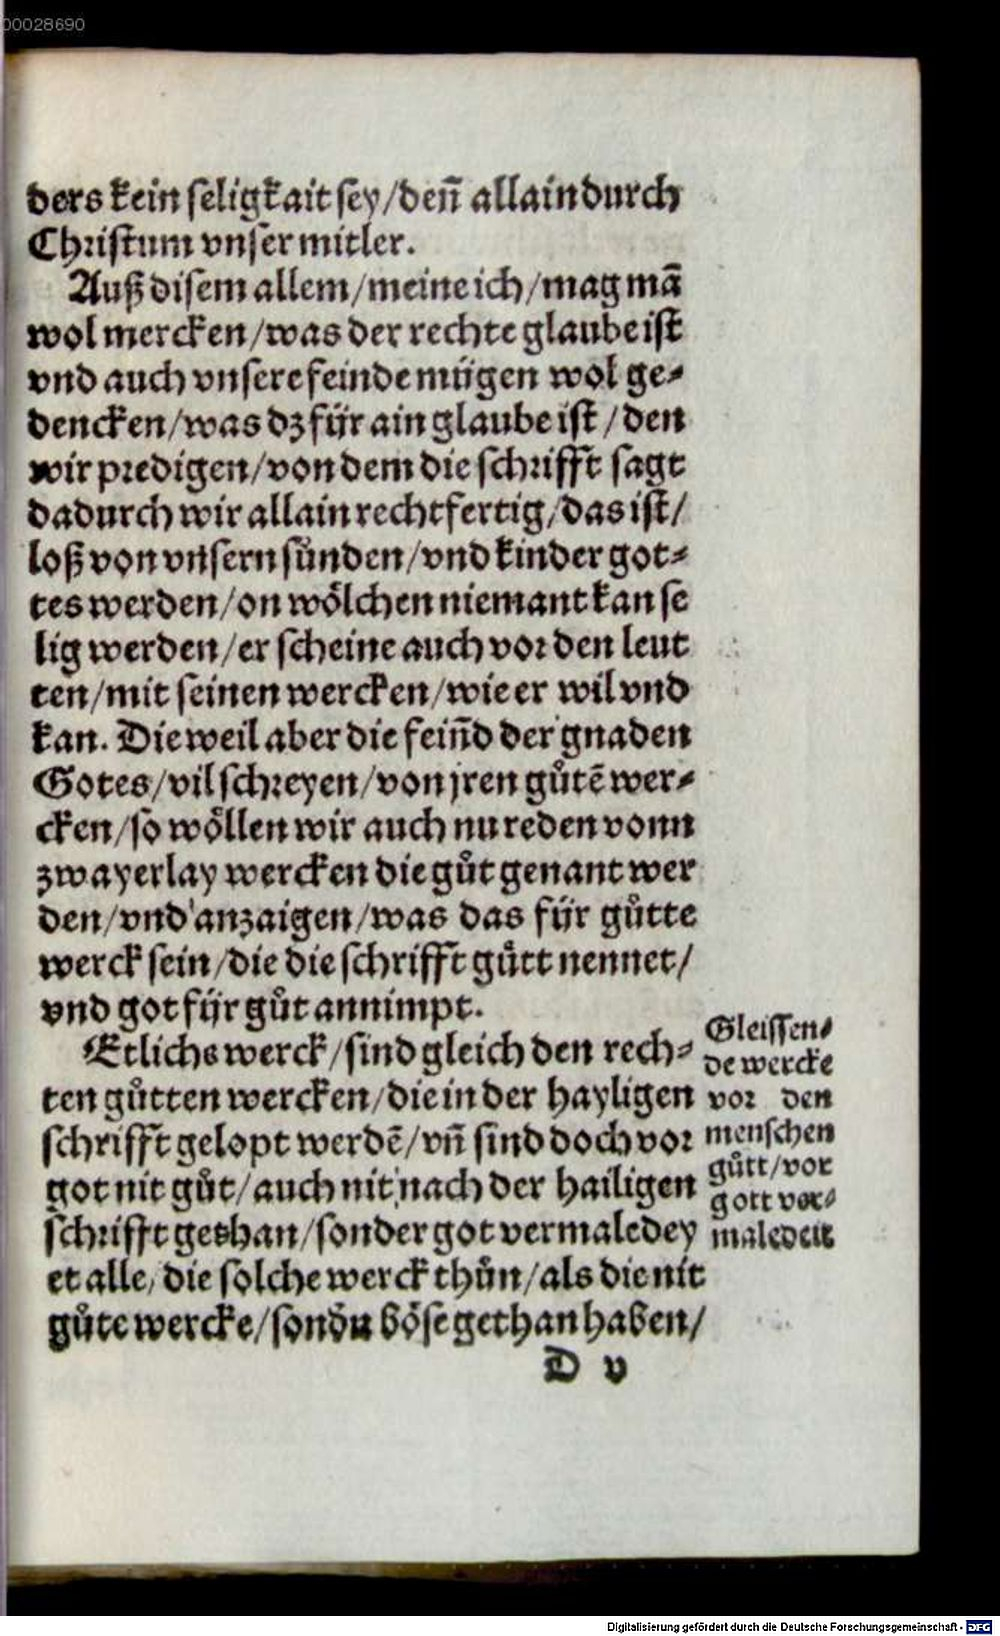 00028690
ders kein seligkait sey/deñ allain durch
Christum vnser mitler.
Auß disem allem/meine ich/mag mā
wol mercken/was der rechte glaube ist
vnd auch vnsere feinde mügen wol ge⸗
dencken/was dz für ain glaube ist/den
wir predigen/von dem die schrifft sagt
dadurch wir allain rechtfertig/das ist/
loß von vnsern sünden/vnd kinder got⸗
tes werden/on wölchen niemant kan se
lig werden/er scheine auch vor den leut
ten/mit seinen wercken/wie er wil vnd
kan. Die weil aber die feiñd der gnaden
Gotes/vil schreyen/von jren gůtē wer⸗
cken/so wöllen wir auch nu reden vonn
zwayerlay wercken die gůt genant wer
den/vnd anzaigen/was das für gůtte
werck sein/die die schrifft gůtt nennet/
vnd got für gůt annimpt.
Etlichs werck/sind gleich den rech⸗
ten gůtten wercken/die in der hayligen
schrifft gelopt werdē/vñ sind doch vor
got nit gůt/auch nit nach der hailigen
schrifft geshan/sonder got vermaledey
et alle/die solche werck thůn/als die nit
gůte wercke/sonďn böse gethan haben/
D v
Gleissen⸗
de wercke
vor den
menschen
gůtt/vor
gott ver⸗
maledeit
Digitalisierung gefördert durch die Deutsche Forschungsgemeinschaft - DFG